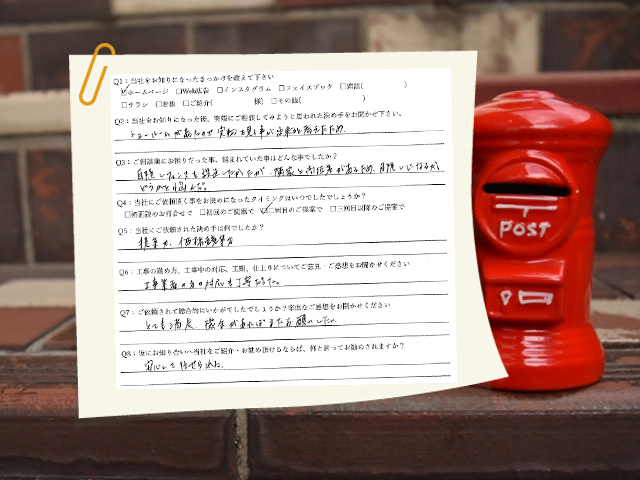 Q1：当社をお知りになったきっかけを教えて下さい
☑ホームページ □Web広告 □インスタグラム □フェイスブック □雑誌( )
□チラシ □看板 □ご紹介( 様) □その他( )
Q2：当社をお知りになった後、実際にご相談してみようと思われた決め手をお聞かせ下さい。
ショールームがあたため実物を見る事が出来ると考えたため.
Q3：ご相談前にお困りだった事、悩まれていた事はどんな事でしたか？
目隠しフェンスを設置したかったが、隣家と高低差があるため、目隠しになるのか
どうかと悩んだ。
Q4：当社にご依頼頂く事をお決めになったタイミングはいつでしたでしょうか？
□初回面談のお打合せで □初回のご提案で ☑二回目のご提案で □三回目以降のご提案で
Q5：当社にご依頼された決め手は何でしたか？
提案力、価格
Q6：工事の進め方、工事中の対応、工期、仕上りについてご意見・ご感想をお聞かせください
工事業者の方の対応も丁寧だった。
Q7：ご依頼されて総合的にいかがでしたでしょうか？率直なご感想をお聞かせください
とても満足 機会があればまたお願いしたい.
Q8：仮にお知り合いへ当社をご紹介・お勧め頂けるならば、何と言ってお勧めされますか？
安心して任せられた.
POST